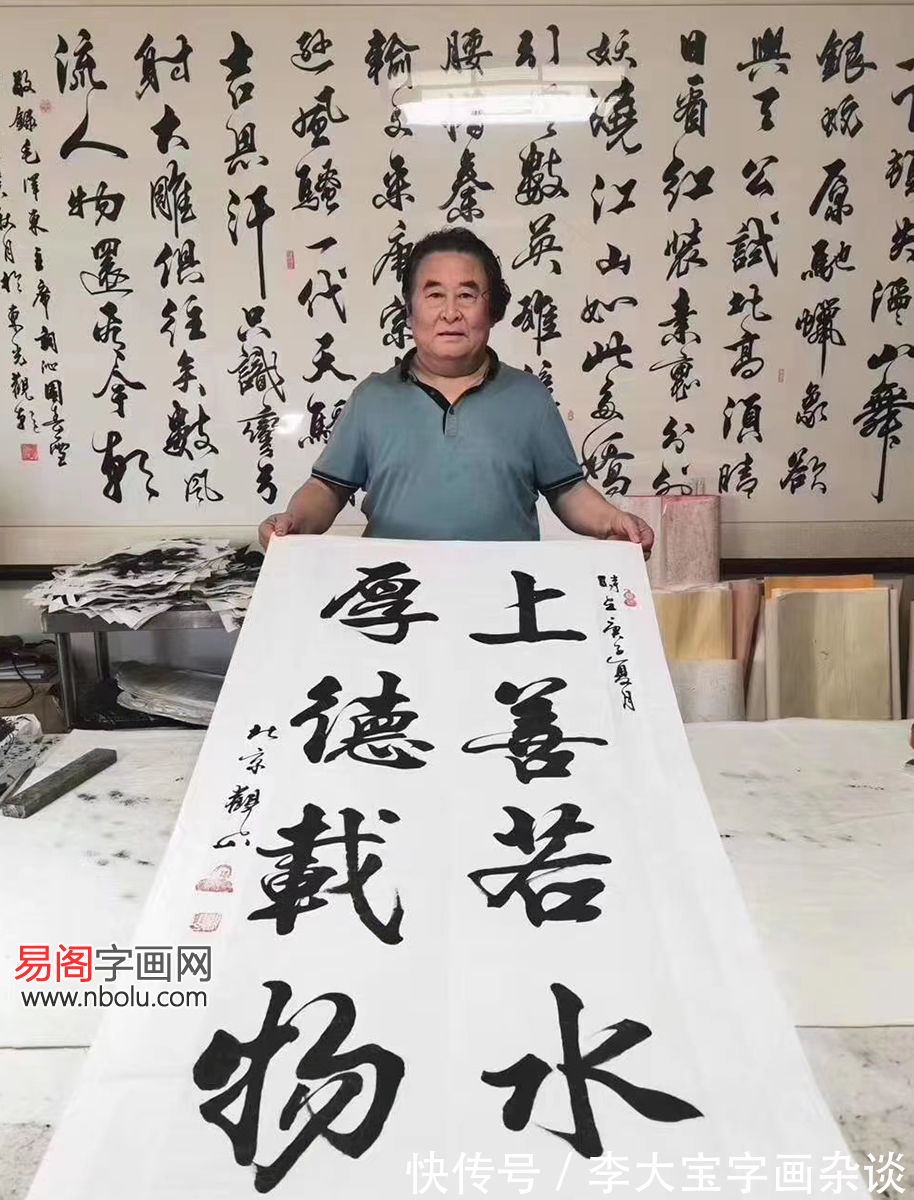 下頓失滔山舞
銀蛇原馳蠟象欲
與天公試比高須晴
日看紅裝素裹分外
妖嬈江山如此多嬌
引無數英雄
腰惜秦
輸文采唐宗
遜風騷一代天驕
吉思汗只識彎弓
射大雕俱往矣數風
流人物還看今朝
敬錄毛澤東主席詞沁園春雪
秋月於東
庚子夏月
上善若水
厚德載物
北京
易阁字画网
www.nbolu.com
快传号 / 李大宝字画杂谈